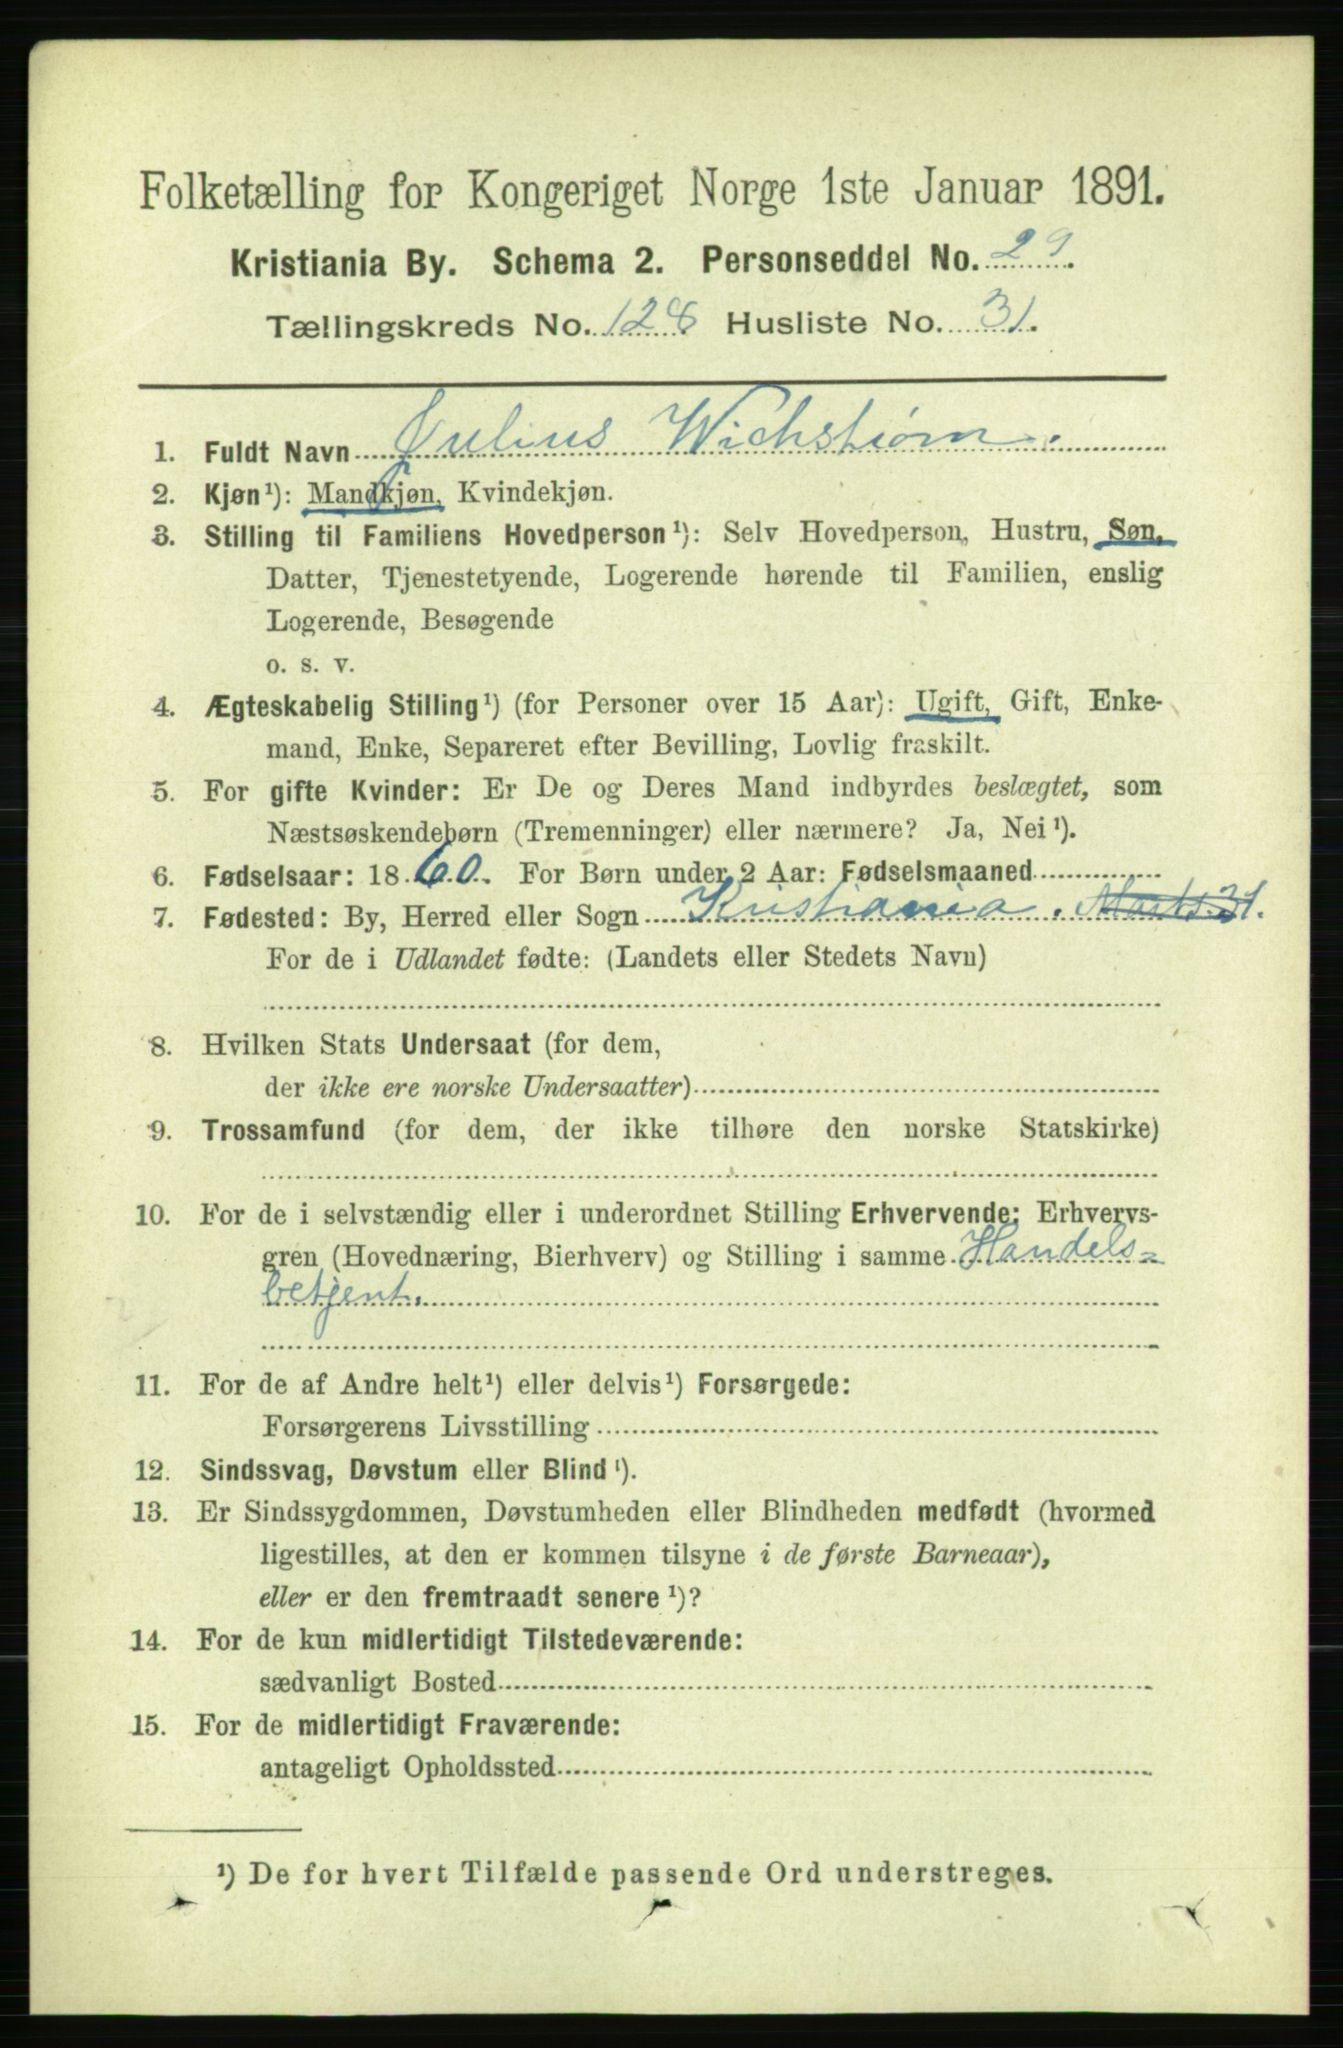 Folketælling for Kongeriget Norge 1ste Januar 1891.
Kristiania By. Schema 2. Personseddel No. 29.
Tællingskreds No. 128 Husliste No. 31.
1. Fuldt Navn Julius Wichstrøm.
2. Kjøn¹): Mandkjøn, Kvindekjøn.
3. Stilling til Familiens Hovedperson¹): Selv Hovedperson, Hustru, Søn,
Datter, Tjenestetyende, Logerende hørende til Familien, enslig
Logerende, Besøgende
o. s. v.
4. Ægteskabelig Stilling¹) (for Personer over 15 Aar): Ugift, Gift, Enke-
mand, Enke, Separeret efter Bevilling, Lovlig fraskilt.
5. For gifte Kvinder: Er De og Deres Mand indbyrdes beslægtet, som
Næstsøskendebørn (Tremenninger) eller nærmere? Ja, Nei¹).
6. Fødselsaar: 1860. For Børn under 2 Aar: Fødselsmaaned
7. Fødested: By, Herred eller Sogn Kristiania. Marts 31.
For de i Udlandet fødte: (Landets eller Stedets Navn)
8. Hvilken Stats Undersaat (for dem,
der ikke ere norske Undersaatter)
9. Trossamfund (for dem, der ikke tilhøre den norske Statskirke)
10. For de i selvstændig eller i underordnet Stilling Erhvervende: Erhvervs-
gren (Hovednæring, Bierhverv) og Stilling i samme Handels=
betjent.
11. For de af Andre helt¹) eller delvis¹) Forsørgede:
Forsørgerens Livsstilling
12. Sindssvag, Døvstum eller Blind¹).
13. Er Sindssygdommen, Døvstumheden eller Blindheden medfødt (hvormed
ligestilles, at den er kommen tilsyne i de første Barneaar),
eller er den fremtraadt senere¹)?
14. For de kun midlertidigt Tilstedeværende:
sædvanligt Bosted
15. For de midlertidigt Fraværende:
antageligt Opholdssted
¹) De for hvert Tilfælde passende Ord understreges.